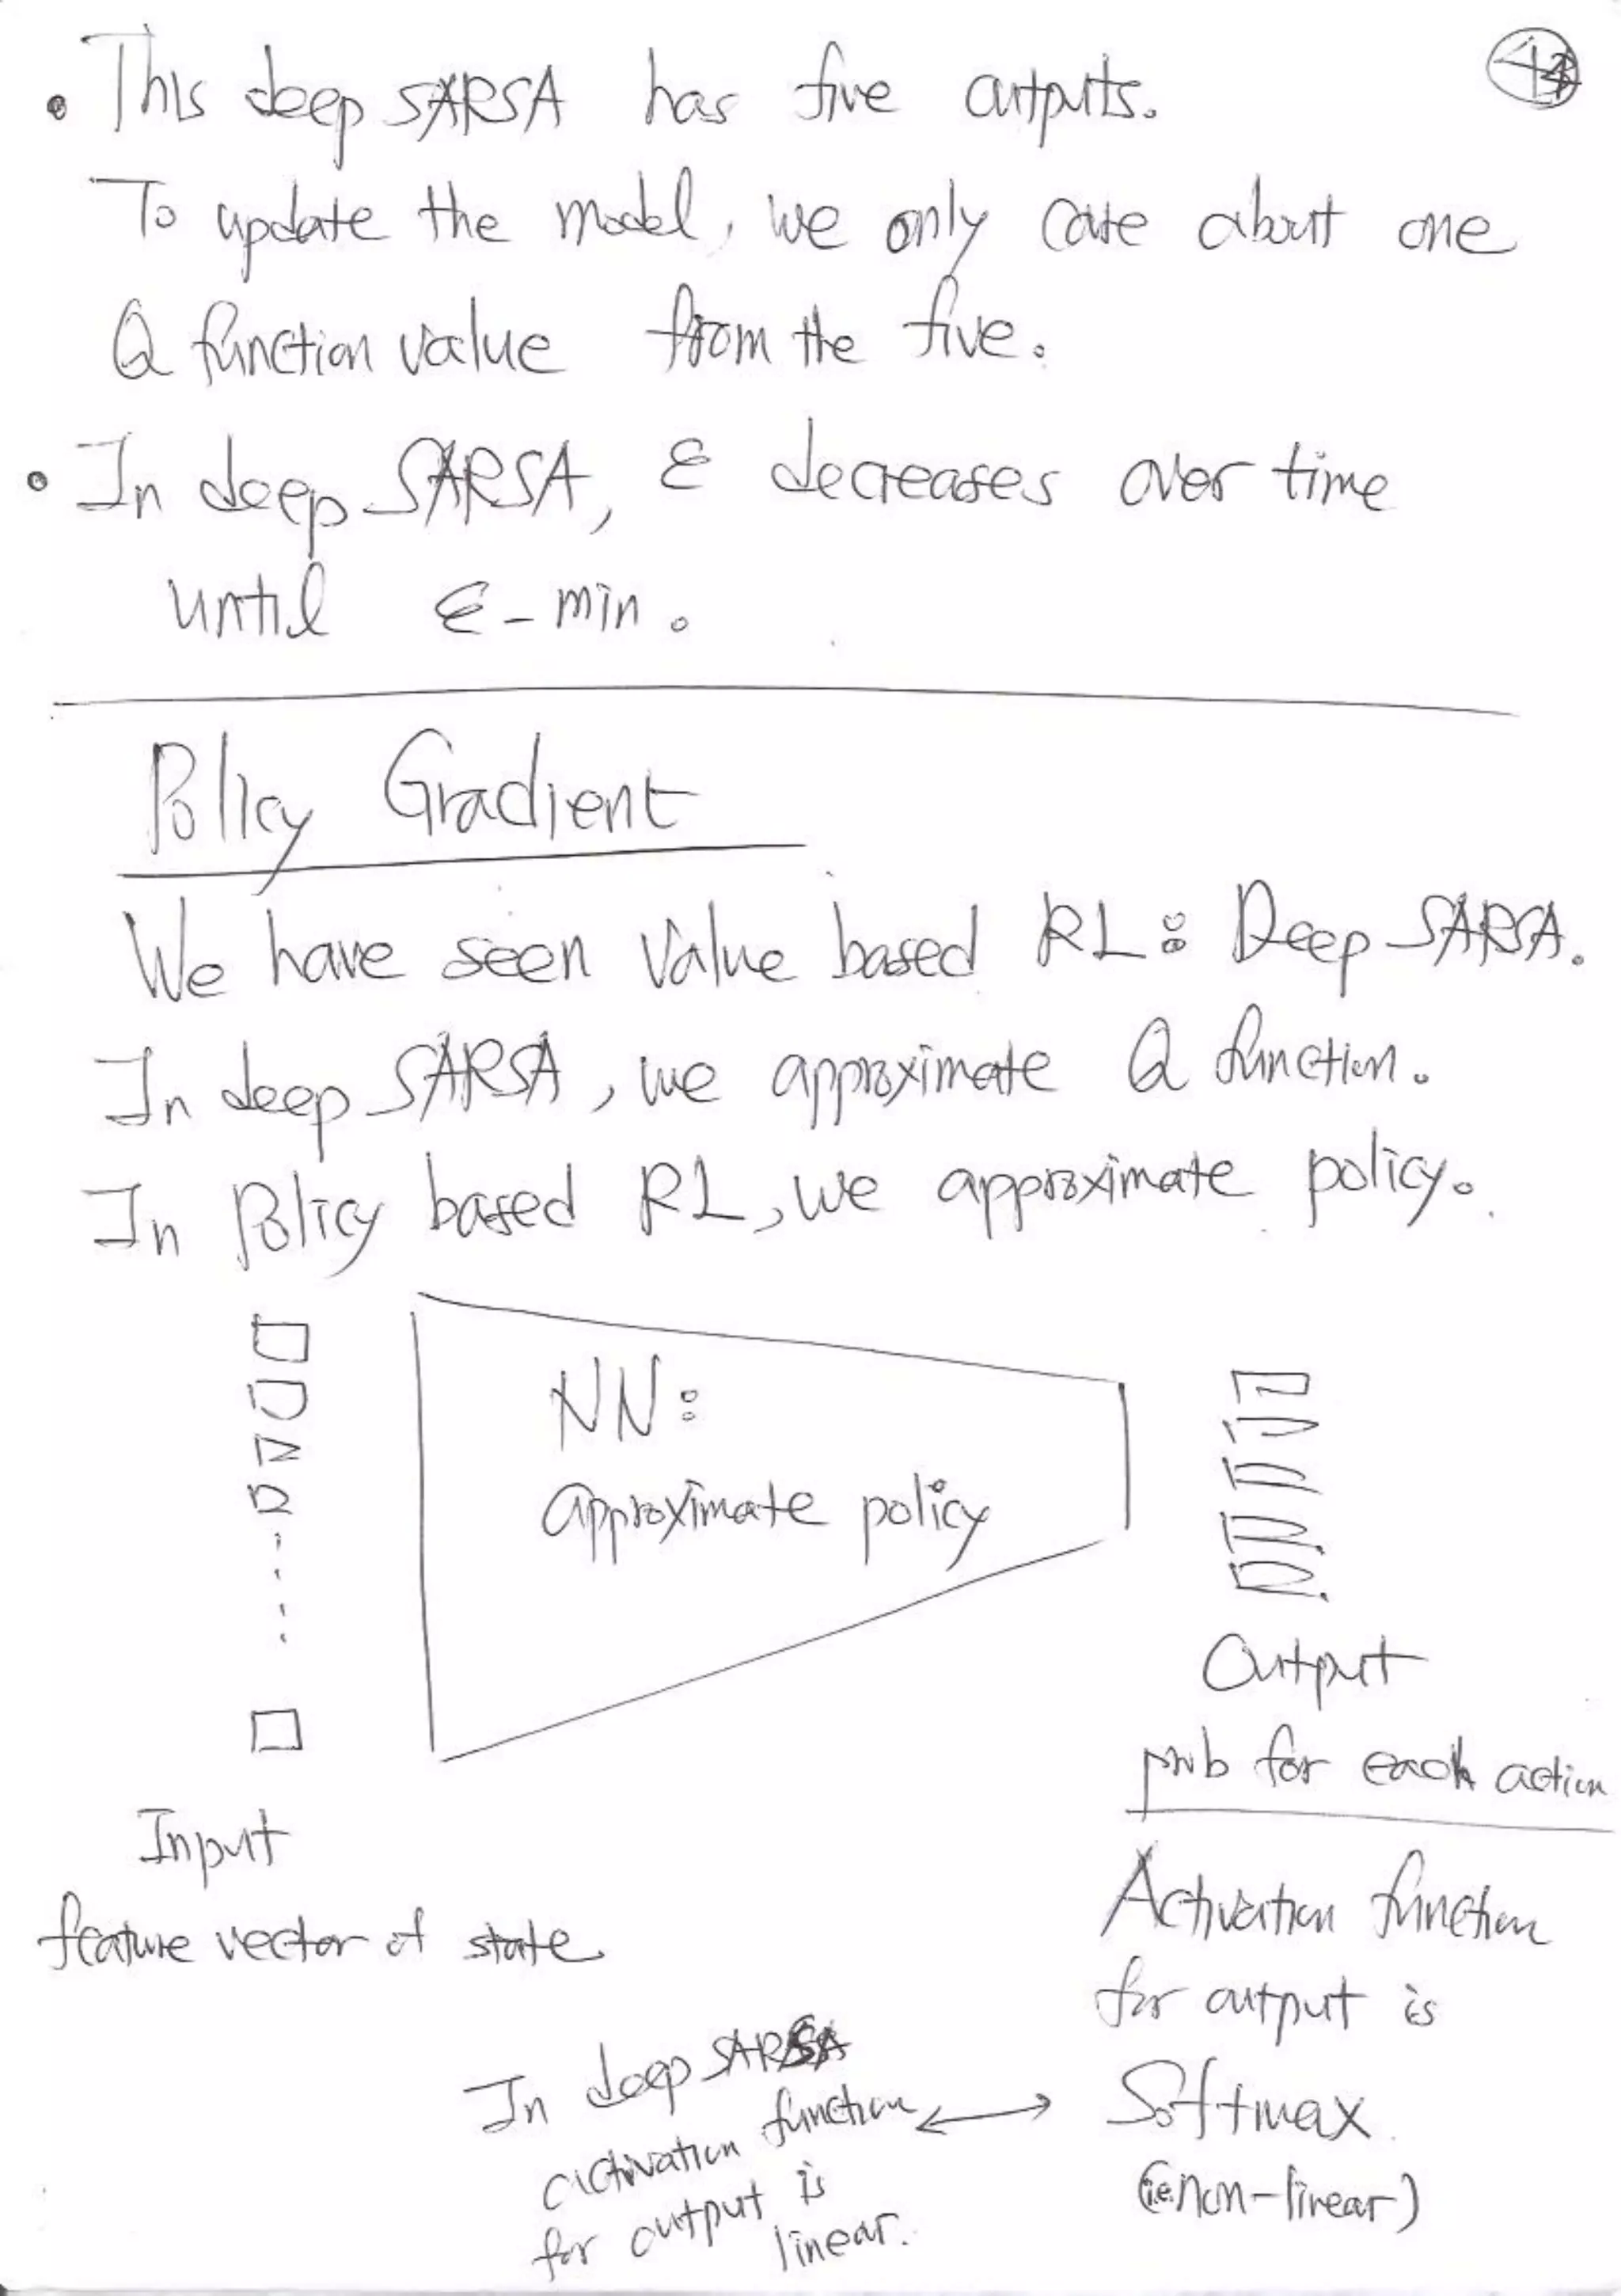 • This deep SARSA has five outputs.
To update the model, we only care about one
Q function value from the five.
• In deep SARSA, ε decreases over time
until ε-min.
Policy Gradient
We have seen Value based RL: Deep SARSA.
In deep SARSA, we approximate Q function.
In Policy based RL, we approximate policy.
NN:
approximate policy
Output
prob for each action
Input
feature vector of state
Activation function
for output is
Softmax
(i.e. non-linear)
In deep SARSA
activation function
for output is
linear.